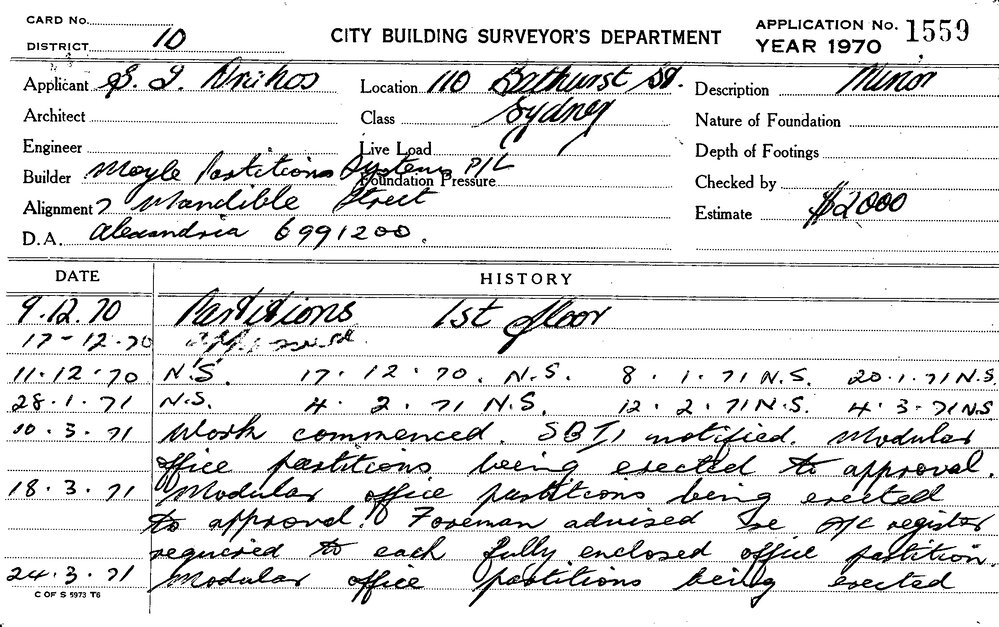 CARD No.
DISTRICT 10
CITY BUILDING SURVEYOR'S DEPARTMENT
APPLICATION No. 1559
YEAR 1970
Applicant S. J. Location 110 Bathurst St. Description Minor
Architect Class Sydney Nature of Foundation
Engineer Live Load Depth of Footings
Builder Moyle Partitions Systems P/L Foundation Pressure Checked by
Alignment 7 Mandible Street Estimate $2000
D.A. Alexandria 6991200.
DATE HISTORY
9.12.70 Partitions 1st floor
17-12-70
11.12.70 N.S. 17.12.70. N.S. 8.1.71 N.S. 20.1.71 N.S.
28.1.71 N.S. 4.2.71 N.S. 12.2.71 N.S. 4.3.71 N.S
10.3.71 Work commenced. notified. Modular
office partitions being erected to approval.
18.3.71 Modular office partitions being erected
to approval. Foreman advised re A/c register
required to each fully enclosed office partition.
24.3.71 Modular office partitions being erected
C OF S 5973 T6